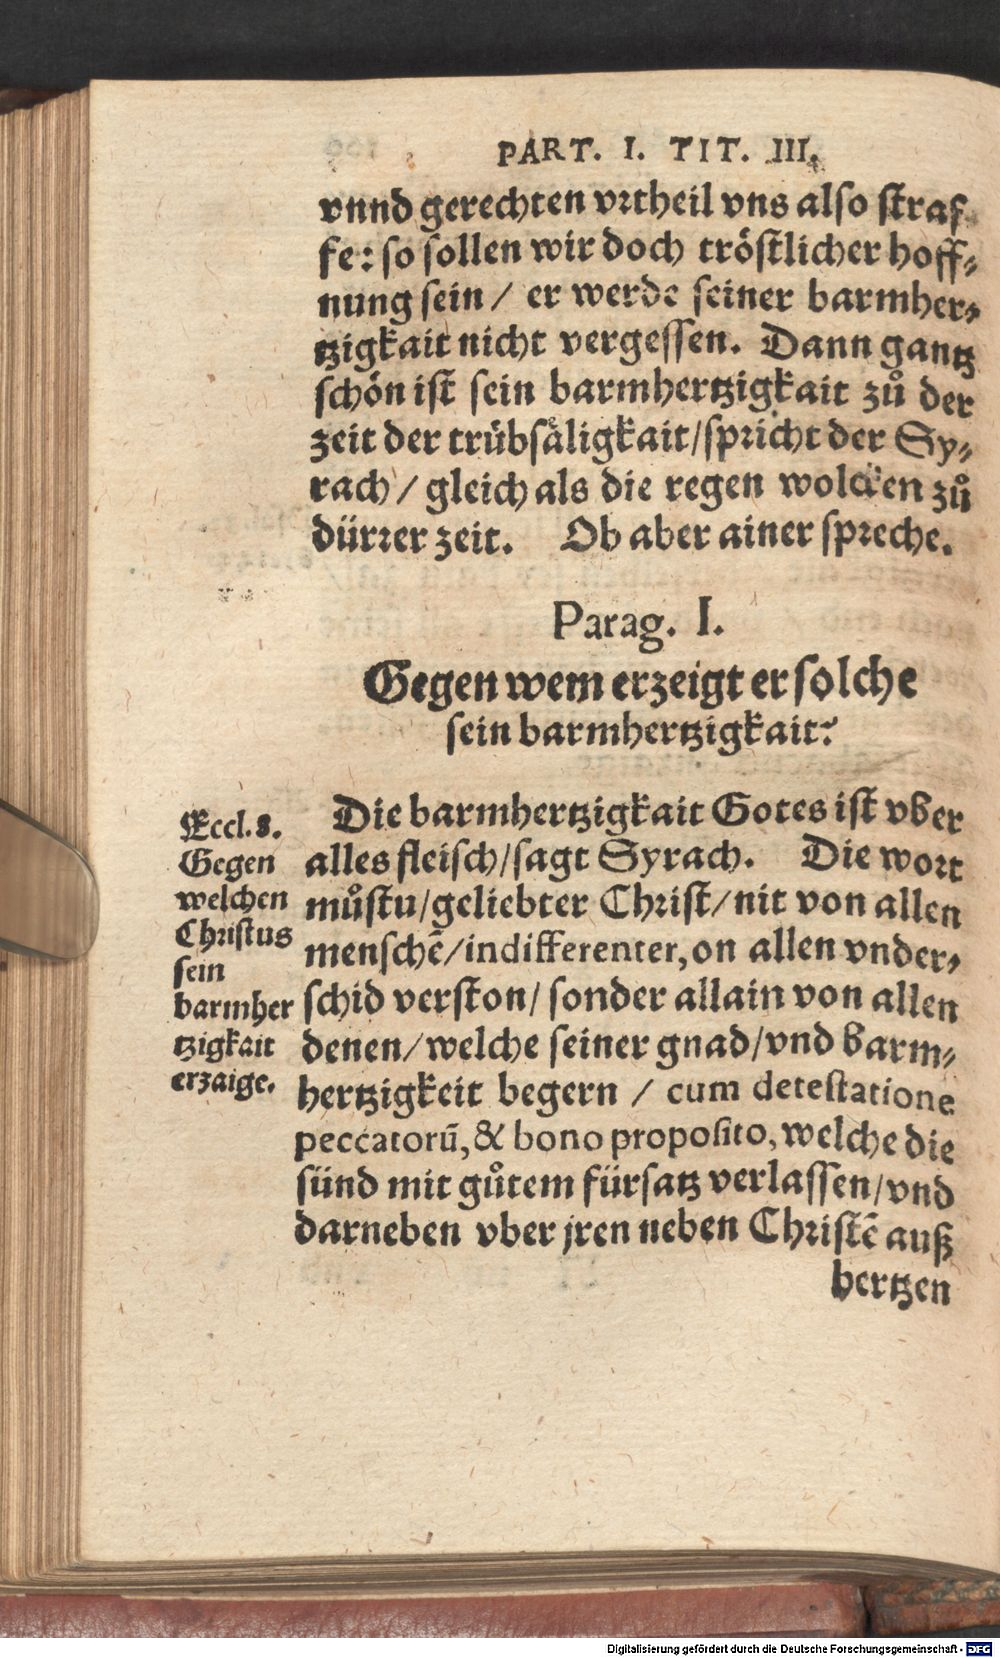 PART. I. TIT. III.
vnnd gerechten vrtheil vns also straf
fe: so sollen wir doch tröstlicher hoff-
nung sein / er werde seiner barmher-
tzigkait nicht vergessen. Dann gantz
schön ist sein barmhertzigkait zů der
zeit der trübsäligkait/spricht der Sy-
rach / gleich als die regen wolcken zů
dürrer zeit. Ob aber ainer spreche.
Parag. I.
Gegen wem erzeigt er solche
sein barmhertzigkait?
Die barmhertzigkait Gotes ist vber
alles fleisch/sagt Syrach. Die wort
můstu/geliebter Christ/nit von allen
menschē/indifferenter, on allen vnder-
schid verston/ sonder allain von allen
denen/welche seiner gnad/vnd barm-
hertzigkeit begern / cum detestatione
peccatorū, & bono proposito, welche die
sünd mit gůtem fürsatz verlassen/vnd
darneben vber jren neben Christē auß
hertzen
Eccl. 8.
Gegen
welchen
Christus
sein
barmher
tzigkait
erzaige.
Digitalisierung gefördert durch die Deutsche Forschungsgemeinschaft - DFG